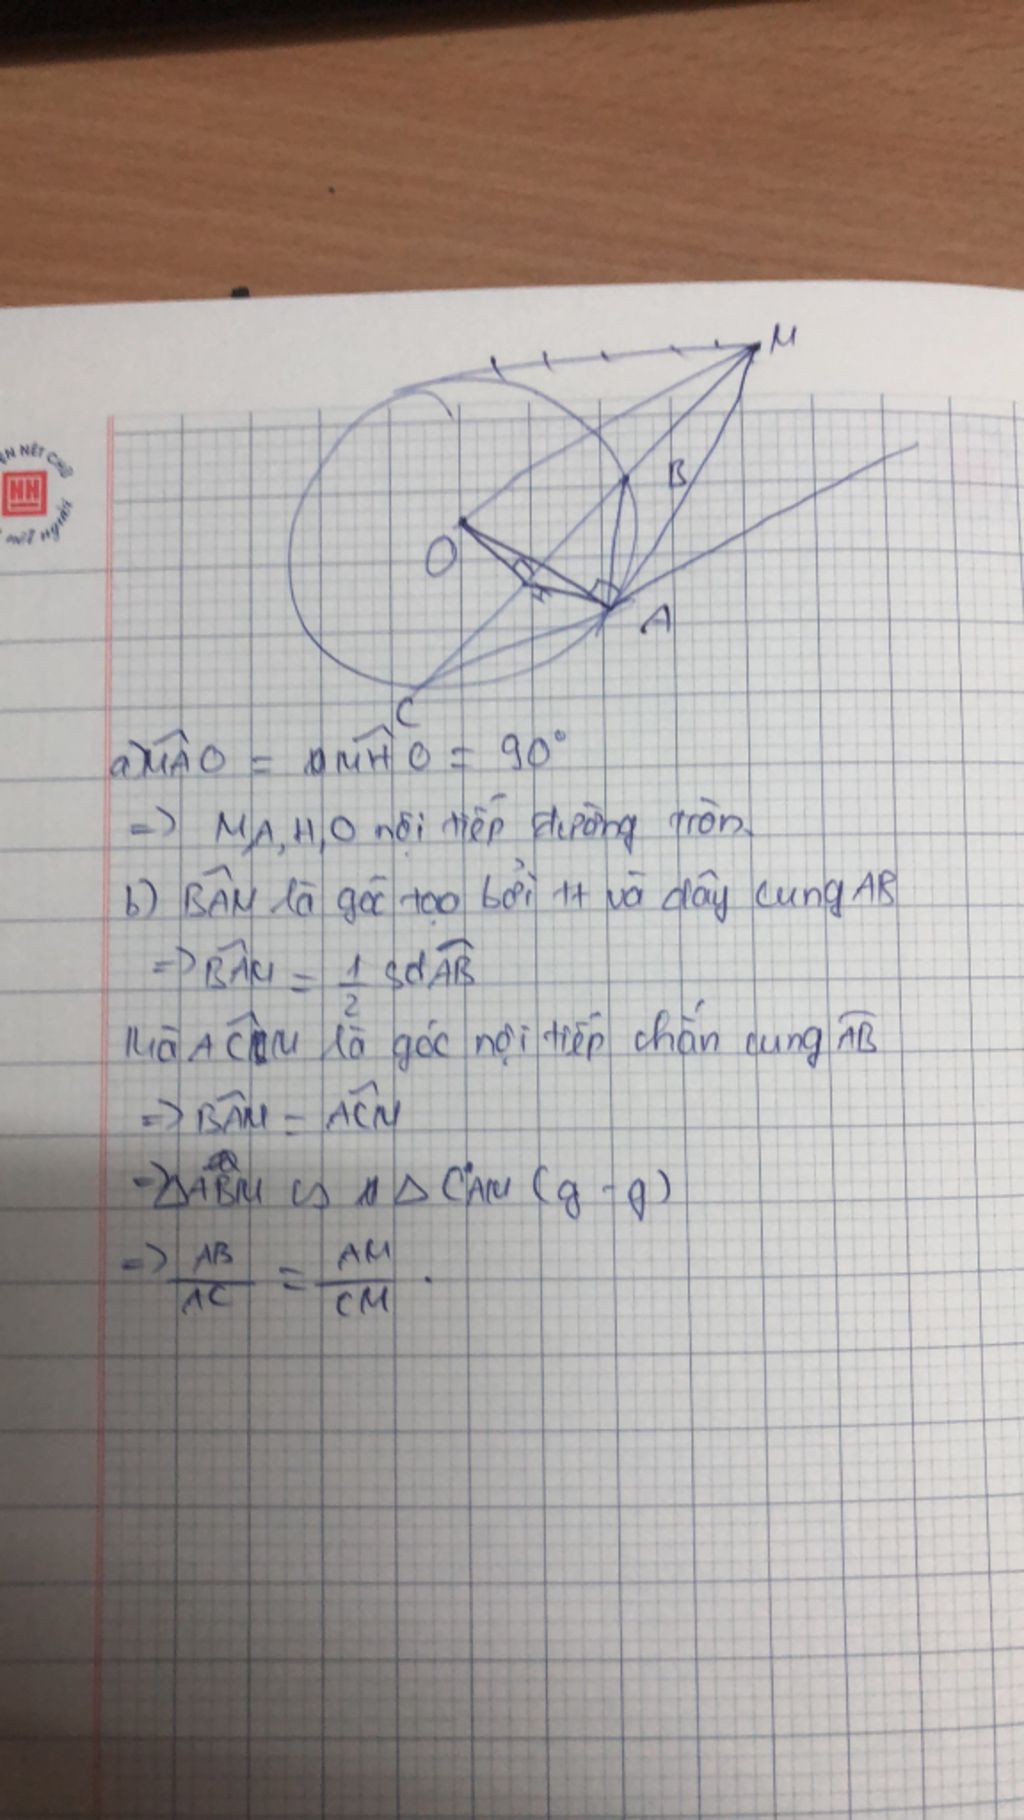 M
B
O
H
A
C
a) M̂AO = MĤO = 90°
=> M,A,H,O nội tiếp đường tròn
b) BÂM là góc tạo bởi tt và dây cung AB
=> BÂM = 1/2 sđ AB
Mà AĈM là góc nội tiếp chắn cung AB
=> BÂM = AĈM
=> ΔABM ∽ ΔCAM (g-g)
=> AB/AC = AM/CM .
NH